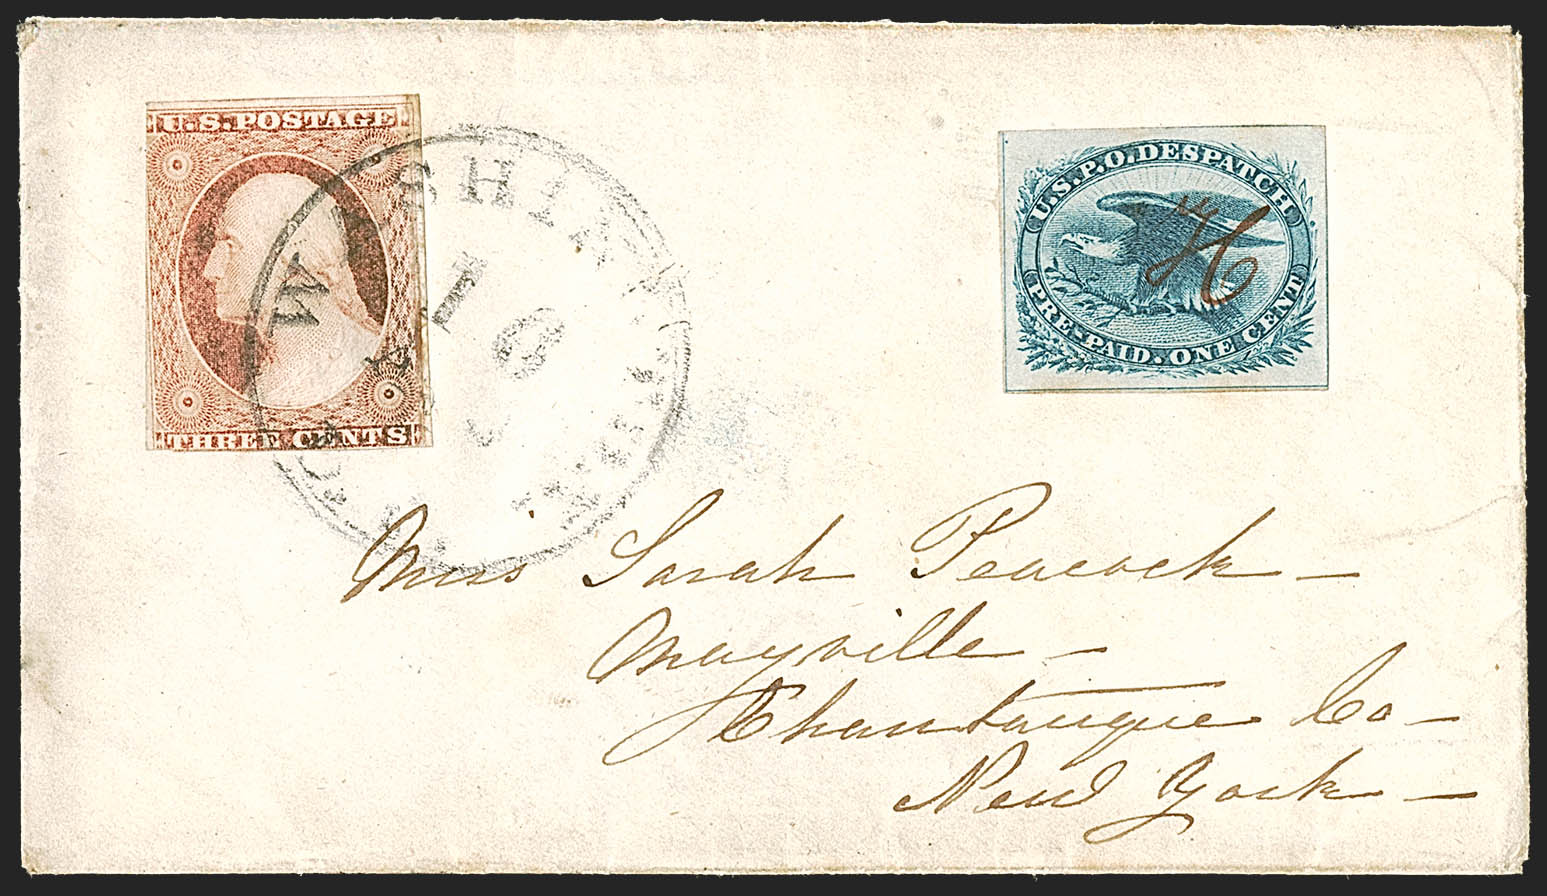 U.S. POSTAGE
THREE CENTS
U.S.P.O. DESPATCH
PRE-PAID. ONE CENT
H
10
Miss Sarah Peacock –
Mayville –
Chautauque Co –
New York –